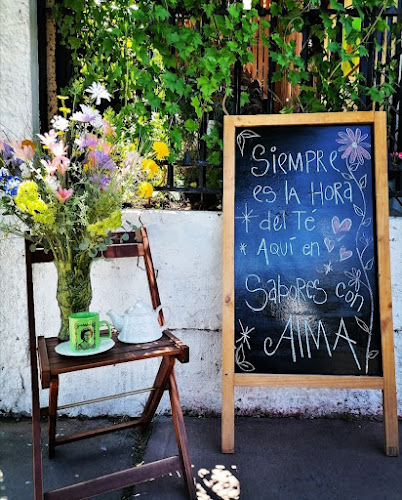 Siempre
es la Hora
del Té
Aquí en
Sabores con
AlMA